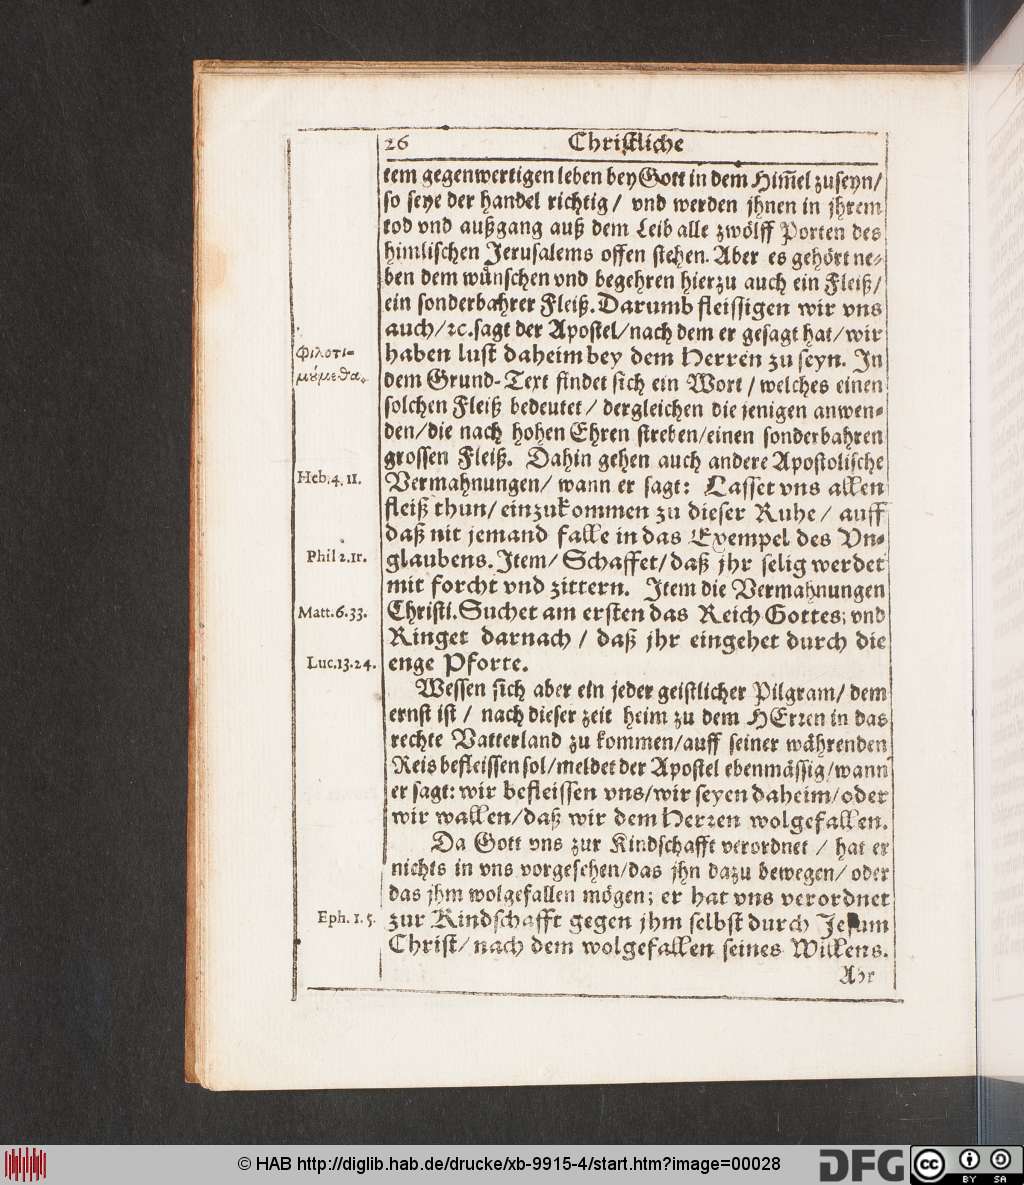 26 Christliche
tem gegenwertigen leben bey Gott in dem Him̃el zuseyn/
so seye der handel richtig/ vnd werden jhnen in jhrem
tod vnd außgang auß dem Leib alle zwölff Porten des
himlischen Jerusalems offen stehen. Aber es gehört ne-
ben dem wünschen vnd begehren hierzu auch ein Fleiß/
ein sonderbahrer Fleiß. Darumb fleissigen wir vns
auch/ ꝛc. sagt der Apostel/ nach dem er gesagt hat/ wir
φιλοτι-
haben lust daheim bey dem Herren zu seyn. In
μύμεθα.
dem Grund-Text findet sich ein Wort/ welches einen
solchen Fleiß bedeutet/ dergleichen die jenigen anwen-
den/ die nach hohen Ehren streben/ einen sonderbahren
grossen Fleiß. Dahin gehen auch andere Apostolische
Heb. 4. 11.
Vermahnungen/ wann er sagt: Lasset vns allen
fleiß thun/ einzukommen zu dieser Ruhe/ auff
daß nit jemand falle in das Exempel des Vn-
Phil 2. 11.
glaubens. Item/ Schaffet/ daß jhr selig werdet
mit forcht vnd zittern. Item die Vermahnungen
Matt. 6. 33.
Christi. Suchet am ersten das Reich Gottes; vnd
Ringet darnach/ daß jhr eingehet durch die
Luc. 13. 24.
enge Pforte.
Wessen sich aber ein jeder geistlicher Pilgram/ dem
ernst ist/ nach dieser zeit heim zu dem HErꝛen in das
rechte Vatterland zu kommen/ auff seiner währenden
Reis befleissen sol/ meldet der Apostel ebenmässig/ wann
er sagt: wir befleissen vns/ wir seyen daheim/ oder
wir wallen/ daß wir dem Herꝛen wolgefallen.
Da Gott vns zur Kindschafft verordnet/ hat er
nichts in vns vorgesehen/ das jhn dazu bewegen/ oder
das jhm wolgefallen mögen; er hat vns verordnet
Eph. 1. 5.
zur Kindschafft gegen jhm selbst durch Jesum
Christ/ nach dem wolgefallen seines Willens.
© HAB http://diglib.hab.de/drucke/xb-9915-4/start.htm?image=00028
DFG
cc BY SA